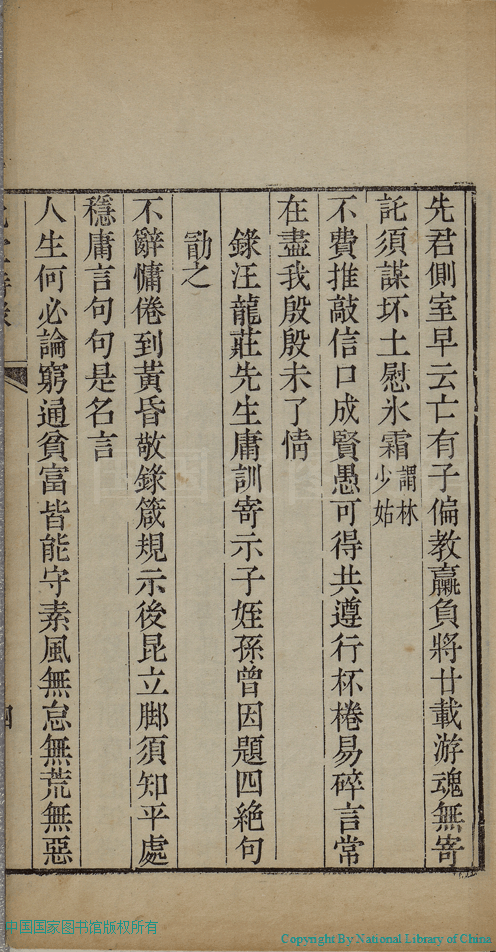 先君側室早云亡有子偏教蠃負將廿載游魂無寄
託須謀坏土慰氷霜謂林少姑
不費推敲信口成賢愚可得共遵行杯棬易碎言常
在盡我殷殷未了情
錄汪龍莊先生庸訓寄示子姪孫曾因題四絶句
勖之
不辭慵倦到黃昏敬錄箴規示後昆立脚須知平處
穩庸言句句是名言
人生何必論窮通貧富皆能守素風無怠無荒無惡
中国国家图书馆版权所有
Copyright By National Library of China